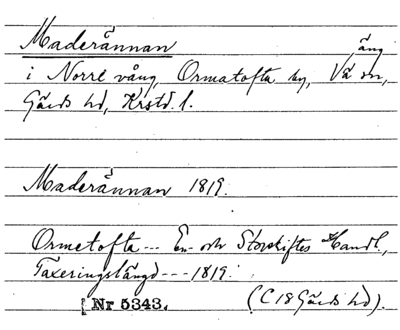 Maderännan äng
i Norre vång, Ormatofta by, Vä sn,
Gärds hd, Krstd. l.
Maderännan 1819.
Ormetofta --- En- och Storskiftes Handl.,
Taxeringslängd --- 1819.
[Nr 5343. (C18 Gärds hd).